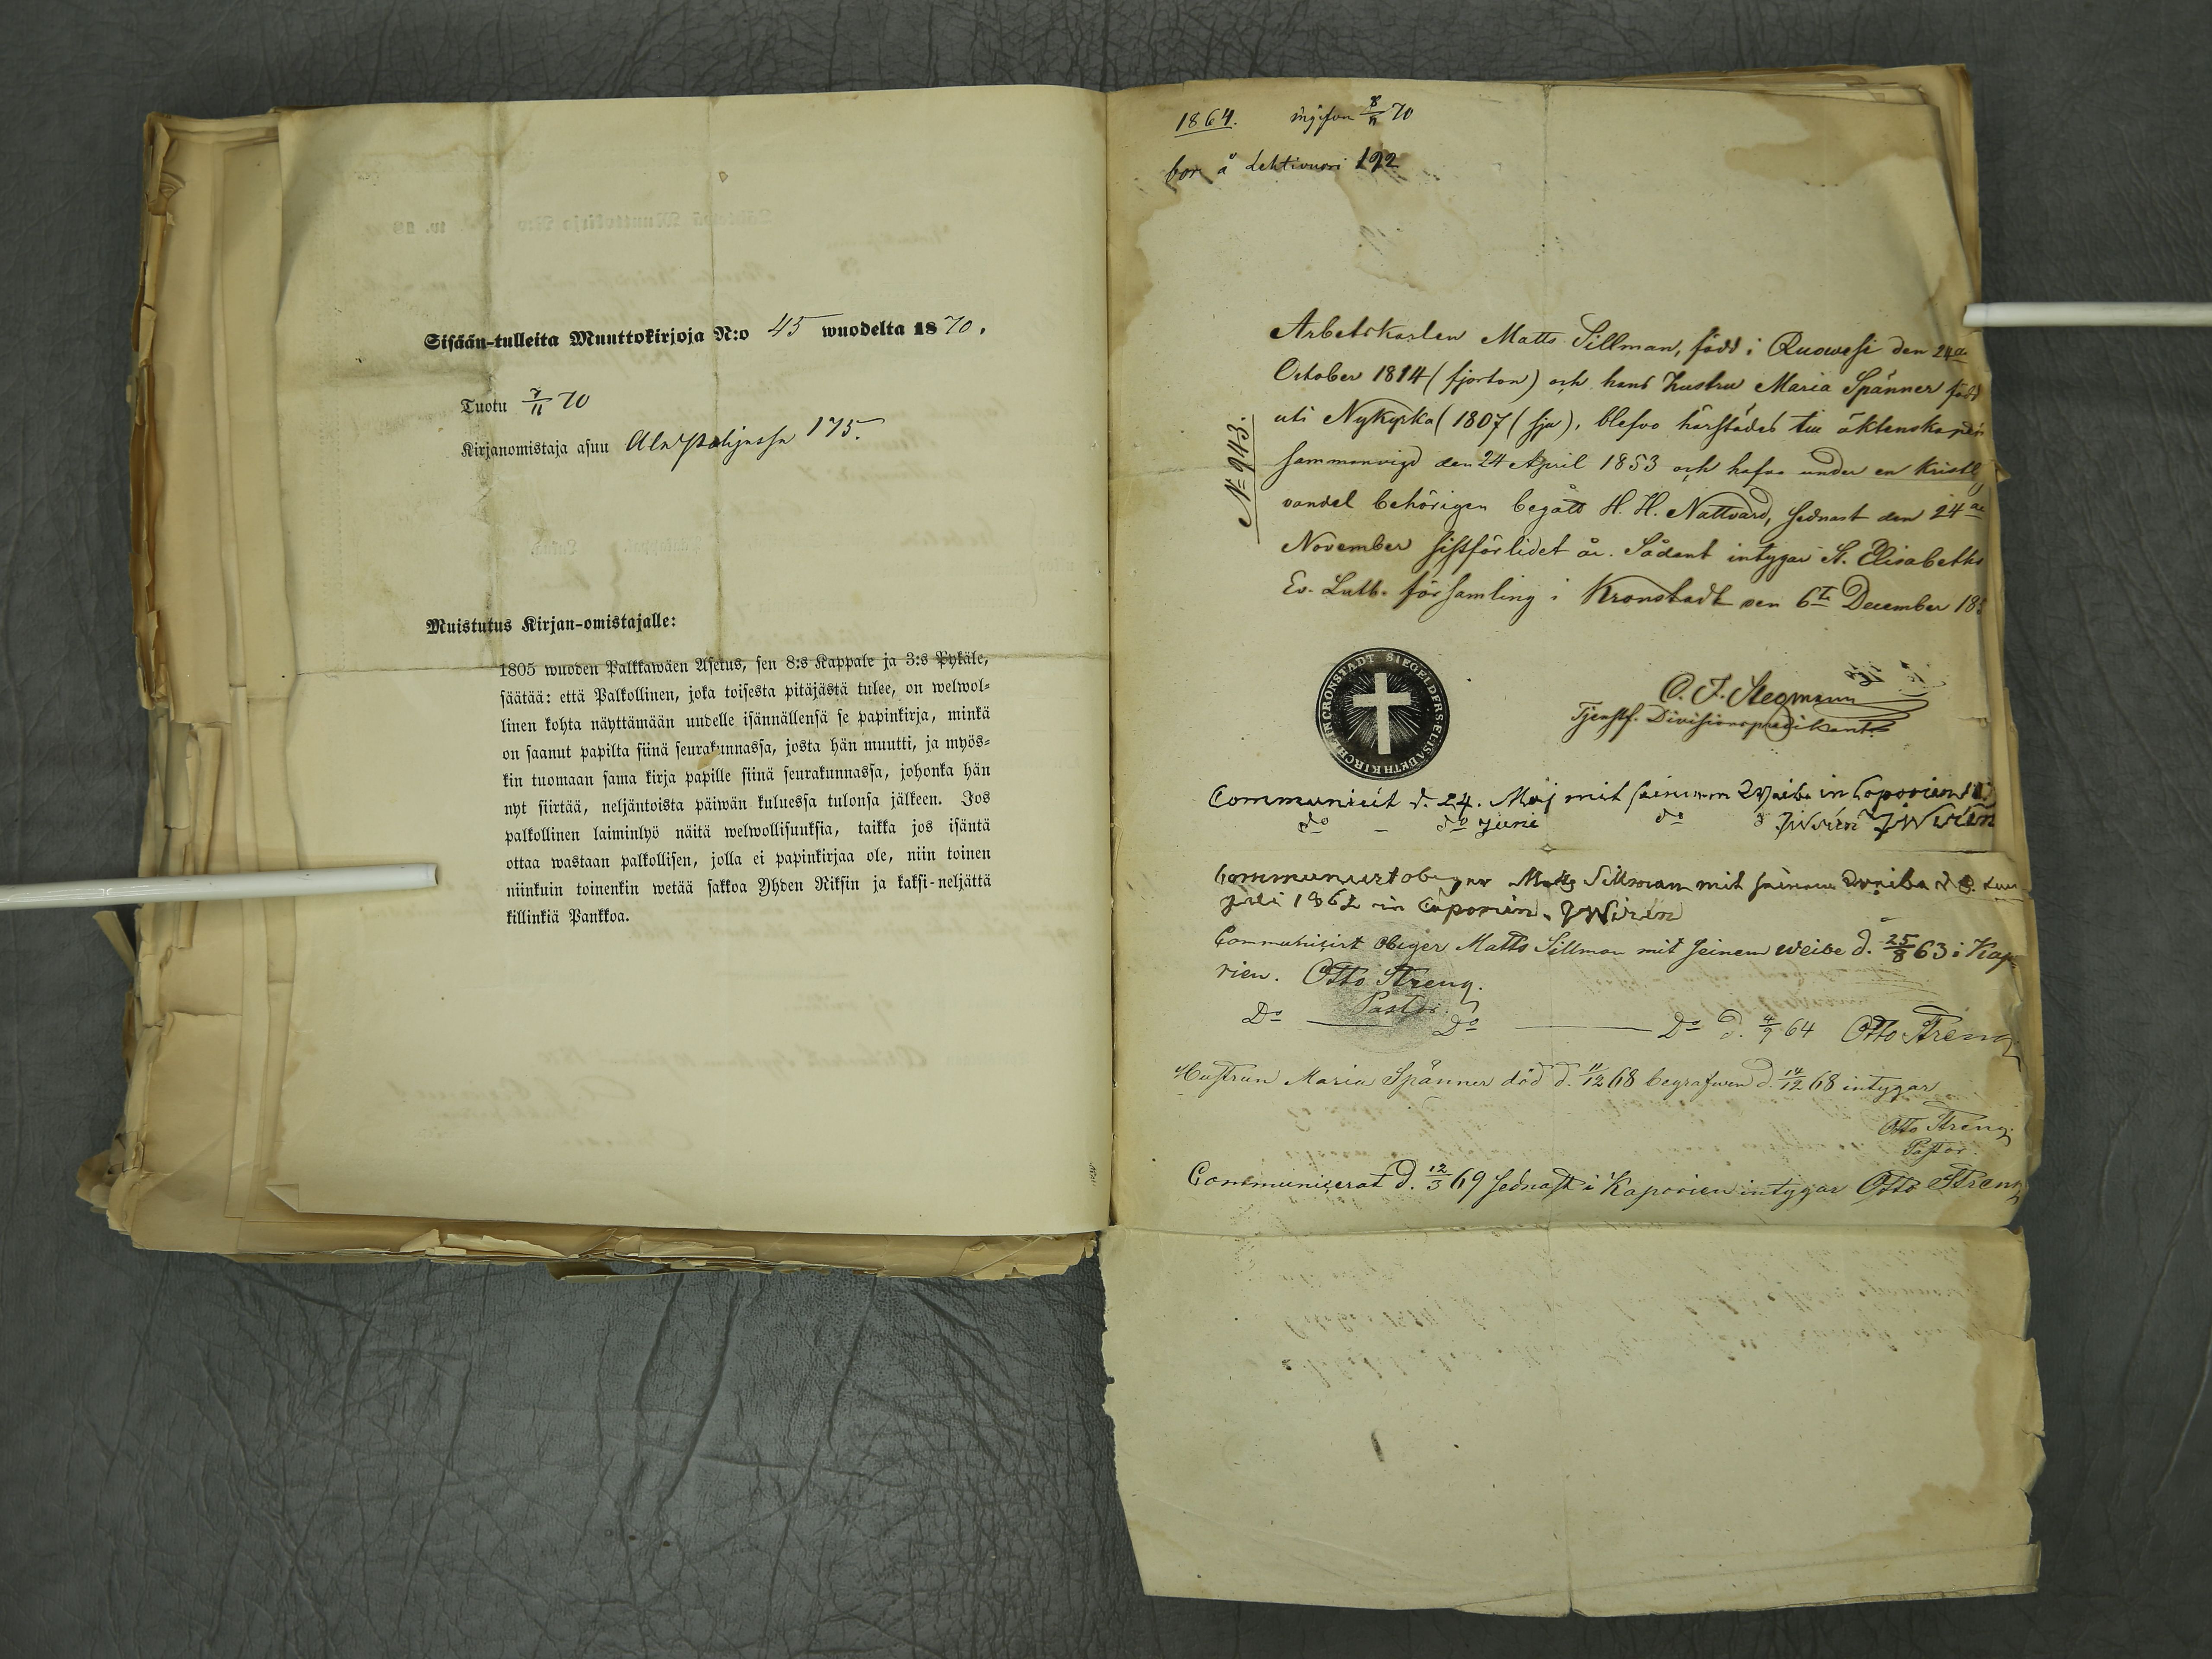 Sisään-tulleita Muuttokirjoja N:o 45 wuodelta 1870.
Tuotu 7/11 70
Kirjanomistaja asuu Ala Pohjassa 175.
Muistutus Kirjan-omistajalle:
1805 wuoden Palkkawäen Asetus, sen 8:s Kappale ja 3:s Pykäle,
säätää: että Palkollinen, joka toisesta pitäjästä tulee, on welwol-
linen kohta näyttämään uudelle isännällensä se papinkirja, minkä
on saanut papilta siinä seurakunnassa, josta hän muutti, ja myös-
kin tuomaan sama kirja papille siinä seurakunnassa, johonka hän
nyt siirtää, neljäntoista päiwän kuluessa tulonsa jälkeen. Jos
palkollinen laiminlyö näitä welwollisuuksia, taikka jos isäntä
ottaa wastaan palkollisen, jolla ei papinkirjaa ole, niin toinen
niinkuin toinenkin wetää sakkoa Yhden Riksin ja kaksi-neljättä
killinkiä Pankkoa.
1864. ingifven 8/11 70
bor å Lehtivuori 192
No 943.
Arbetskarlen Matts Sillman, född i Ruowesi den 24de
October 1814 (fjorton) och hans hustru Maria Spänner född
uti Nykyrka (1807 (sju), blefvo härstädes till äktenskapet
sammanvigd den 24 April 1853 och hafva under en kristl.
vandel behörigen begått H. H. Nattvard, sednast den 24de
November sistförlidet år. Sådant intygar St. Elisabeths
Ev. Luth. församling i Kronstadt den 6te December 18
C. F. Stegmann
Tjenstf. Divisionspredikant.
SIEGEL DER ST. ELISABETHKIRCHE IN CRONSTADT
Communicirt d. 24. Maj mit seinem Weibe in Caporien
do – do Juni do JWirén JWirén
Communicirt obiger Matts Sillman mit seinem Weibe d.
Juli 1862 in Caporien. JWirén
Communicirt obiger Matts Sillman mit seinem weibe d. 25/8 63 i Kap-
rien. Otto Streng.
Pastor.
Do — Do — Do d. 4/9 64 Otto Streng
Hustrun Maria Spänner död d. 11/12 68 begrafven d. 14/12 68 intygar
Otto Streng.
Pastor.
Communicerat d. 12/3 69 sednast i Kaporien intygar Otto Streng